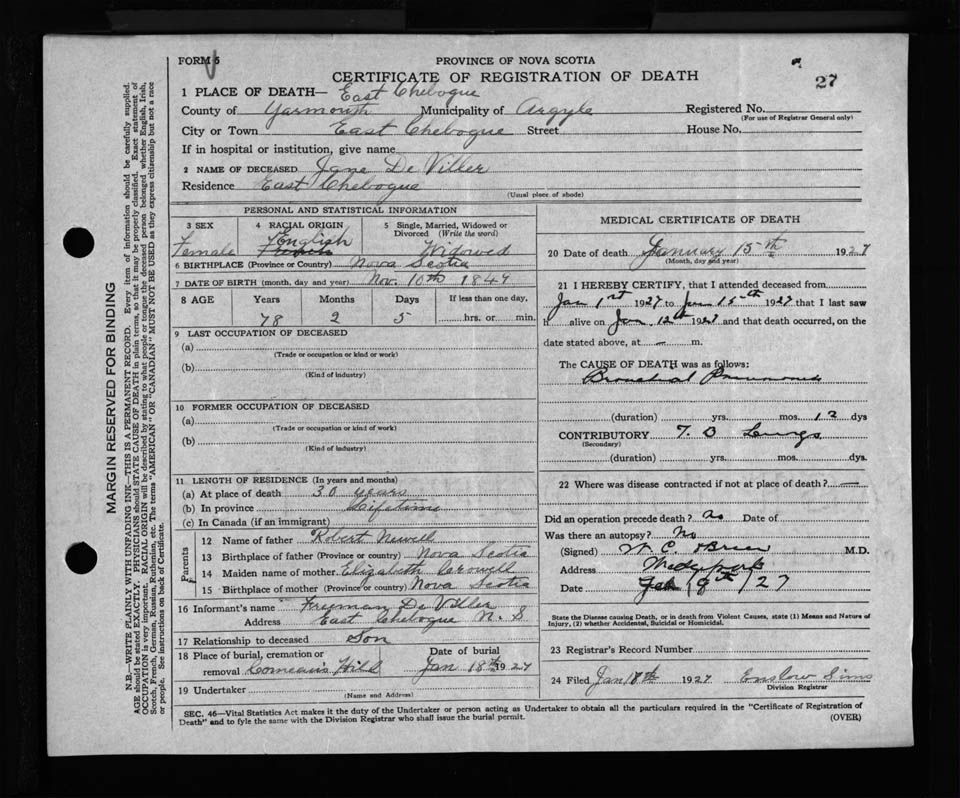 FORM 5
PROVINCE OF NOVA SCOTIA
27
CERTIFICATE OF REGISTRATION OF DEATH
1 PLACE OF DEATH— East Chebogue
County of Yarmouth Municipality of Argyle Registered No.
(For use of Registrar General only)
City or Town East Chebogue Street House No.
If in hospital or institution, give name
2 NAME OF DECEASED Jane De Viller
Residence East Chebogue
(Usual place of abode)
PERSONAL AND STATISTICAL INFORMATION
3 SEX 4 RACIAL ORIGIN 5 Single, Married, Widowed or Divorced (Write the word)
English
Female French Widowed
6 BIRTHPLACE (Province or Country) Nova Scotia
7 DATE OF BIRTH (month, day and year) Nov. 10th 1849
8 AGE Years Months Days If less than one day,
78 2 5 hrs. or min.
9 LAST OCCUPATION OF DECEASED
(a)
(Trade or occupation or kind or work)
(b)
(Kind of industry)
10 FORMER OCCUPATION OF DECEASED
(a)
(Trade or occupation or kind of work)
(b)
(Kind of industry)
11 LENGTH OF RESIDENCE (In years and months)
(a) At place of death 30 years
(b) In province Lifetime
(c) In Canada (if an immigrant)
Parents
12 Name of father Robert Newell
13 Birthplace of father (Province or country) Nova Scotia
14 Maiden name of mother Elizabeth Crowell
15 Birthplace of mother (Province or country) Nova Scotia
16 Informant's name Freeman De Viller
Address East Chebogue N. S
17 Relationship to deceased Son
18 Place of burial, cremation or removal Comeau's Hill Date of burial Jan 18th 1927
19 Undertaker
(Name and Address)
MEDICAL CERTIFICATE OF DEATH
20 Date of death January 15th 1927
(Month, day and year)
21 I HEREBY CERTIFY, that I attended deceased from
Jan 1st 1927 to Jan 15th 1927 that I last saw
h alive on Jan. 12th 1927 and that death occurred, on the
date stated above, at — m.
The CAUSE OF DEATH was as follows:
Bronchial Pneumonia
(duration) yrs. mos. 12 dys
CONTRIBUTORY T. B Lungs
(Secondary)
(duration) yrs. mos. dys.
22 Where was disease contracted if not at place of death? —
Did an operation precede death? No Date of
Was there an autopsy? No
(Signed) W. C. O'Brien M.D.
Address Wedgeport
Date Feb 8th / 27
State the Disease causing Death, or in Death from Violent Causes, state (1) Means and Nature of Injury, (2) whether Accidental, Suicidal or Homicidal.
23 Registrar's Record Number
24 Filed Jan 18th 1927 Enslow Sims
Division Registrar
SEC. 46—Vital Statistics Act makes it the duty of the Undertaker or person acting as Undertaker to obtain all the particulars required in the "Certificate of Registration of
Death" and to fyle the same with the Division Registrar who shall issue the burial permit.
(OVER)
MARGIN RESERVED FOR BINDING
N.B.—WRITE PLAINLY WITH UNFADING INK—THIS IS A PERMANENT RECORD. Every item of information should be carefully supplied.
AGE should be stated EXACTLY. PHYSICIANS should STATE CAUSE OF DEATH in plain terms, so that it may be properly classified. Exact statement of
OCCUPATION is very important. RACIAL ORIGIN will be described by stating to what people or tongue the deceased person belonged whether English, Irish,
Scotch, French, German, Russian, Ruthenian, etc. The terms "AMERICAN" OR "CANADIAN" MUST NOT BE USED as they express citizenship but not a race
or people. See instructions on back of Certificate.